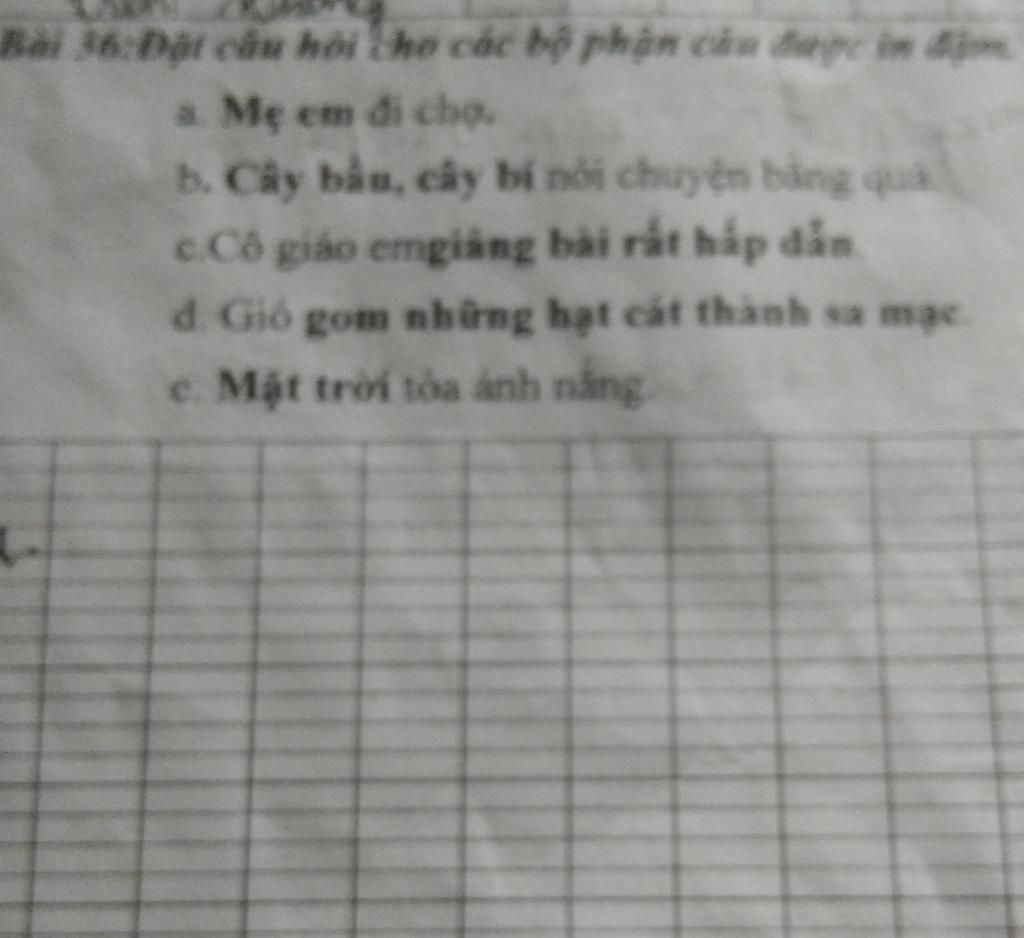 Bài 36:Đặt câu hỏi cho các bộ phận câu được in đậm.
a. Mẹ em đi chợ.
b. Cây bầu, cây bí nói chuyện bằng quả.
c.Cô giáo emgiảng bài rất hấp dẫn.
d. Gió gom những hạt cát thành sa mạc.
e. Mặt trời tỏa ánh nắng.